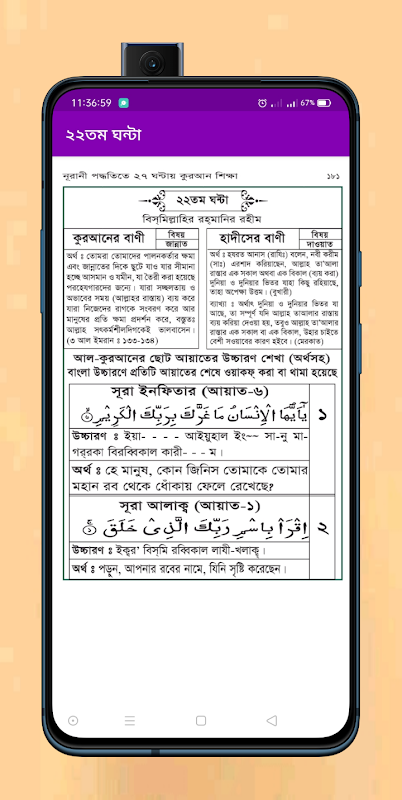 11:36:59
67%
২২তম ঘন্টা
নূরানী পদ্ধতিতে ২৭ ঘন্টায় কুরআন শিক্ষা ১৮১
২২তম ঘন্টা
বিস্‌মিল্লাহির রহ্‌মানির রহীম
কুরআনের বাণী
বিষয়
জান্নাত
অর্থ : তোমরা তোমাদের পালনকর্তার ক্ষমা
এবং জান্নাতের দিকে ছুটে যাও যার সীমানা
হচ্ছে আসমান ও যমীন, যা তৈরী করা হয়েছে
পরহেযগারদের জন্যে। যারা সচ্ছলতায় ও
অভাবের সময় (আল্লাহর রাস্তায়) ব্যয় করে
যারা নিজেদের রাগকে সংবরণ করে আর
মানুষের প্রতি ক্ষমা প্রদর্শন করে, বস্তুতঃ
আল্লাহ সৎকর্মশীলদিগকেই ভালবাসেন।
(৩ আল ইমরান : ১৩৩-১৩৪)
হাদীসের বাণী
বিষয়
দাওয়াত
অর্থ : হযরত আনাস (রাযিঃ) বলেন, নবী করীম
(সাঃ) এরশাদ করিয়াছেন, আল্লাহ তা'আলা
রাস্তার এক সকাল অথবা এক বিকাল (ব্যয় করা)
দুনিয়া ও দুনিয়ার ভিতর যাহা কিছু রহিয়াছে,
তাহা অপেক্ষা উত্তম। (বুখারী)
ব্যাখ্যা : অর্থাৎ দুনিয়া ও দুনিয়ার ভিতর যা
আছে, তা সম্পূর্ণ যদি আল্লাহ তাআলার রাস্তায়
ব্যয় করিয়া দেওয়া হয়, তবুও আল্লাহ তা'আলার
রাস্তার এক সকাল বা এক বিকাল, উহার চাইতে
বেশী সওয়াবের কারণ হইবে। (মেরকাত)
আল-কুরআনের ছোট আয়াতের উচ্চারণ শেখা (অর্থসহ)
বাংলা উচ্চারণে প্রতিটি আয়াতের শেষে ওয়াকফ্ করা বা থামা হয়েছে
সূরা ইনফিতার (আয়াত-৬)
يٰۤاَيُّهَا الْاِنْسَانُ مَا غَرَّكَ بِرَبِّكَ الْكَرِيْمِ ১
উচ্চারণ : ইয়া- - - - আইয়ুহাল ইং~~ সা-নু মা-
গর্‌রকা বিরব্বিকাল কারী-- - ম।
অর্থ : হে মানুষ, কোন জিনিস তোমাকে তোমার
মহান রব থেকে ধোঁকায় ফেলে রেখেছে?
সূরা আলাক্ব (আয়াত-১)
اِقْرَاْ بِاسْمِ رَبِّكَ الَّذِىْ خَلَقَ ২
উচ্চারণ : ইক্‌র' বিস্‌মি রব্বিকাল লাযী-খলাক্ব।
অর্থ : পড়ুন, আপনার রবের নামে, যিনি সৃষ্টি করেছেন।